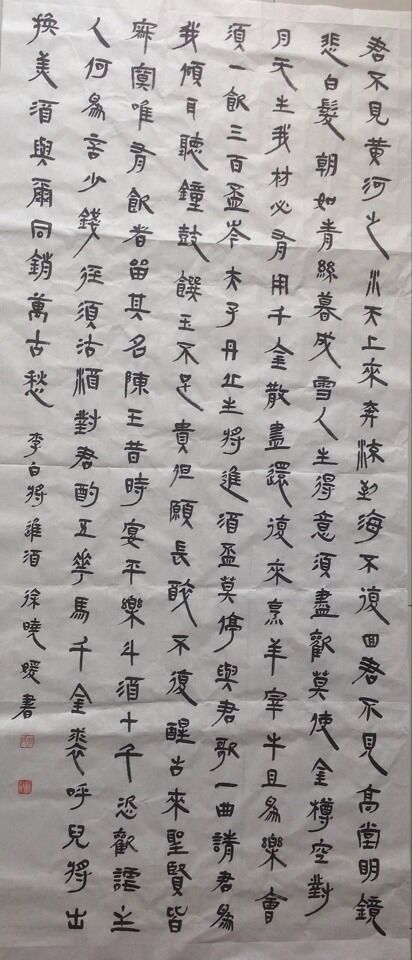 君不見黃河之水天上來奔流到海不復回君不見高堂明鏡
悲白髮朝如青絲暮成雪人生得意須盡歡莫使金樽空對
月天生我材必有用千金散盡還復來烹羊宰牛且為樂會
須一飲三百盃岑夫子丹丘生將進酒盃莫停與君歌一曲請君為
我傾耳聽鐘鼓饌玉不足貴但願長醉不復醒古來聖賢皆
寂寞唯有飲者留其名陳王昔時宴平樂斗酒十千恣歡謔主
人何為言少錢徑須沽酒對君酌五華馬千金裘呼兒將出
換美酒與爾同銷萬古愁 李白將進酒 徐曉媛書